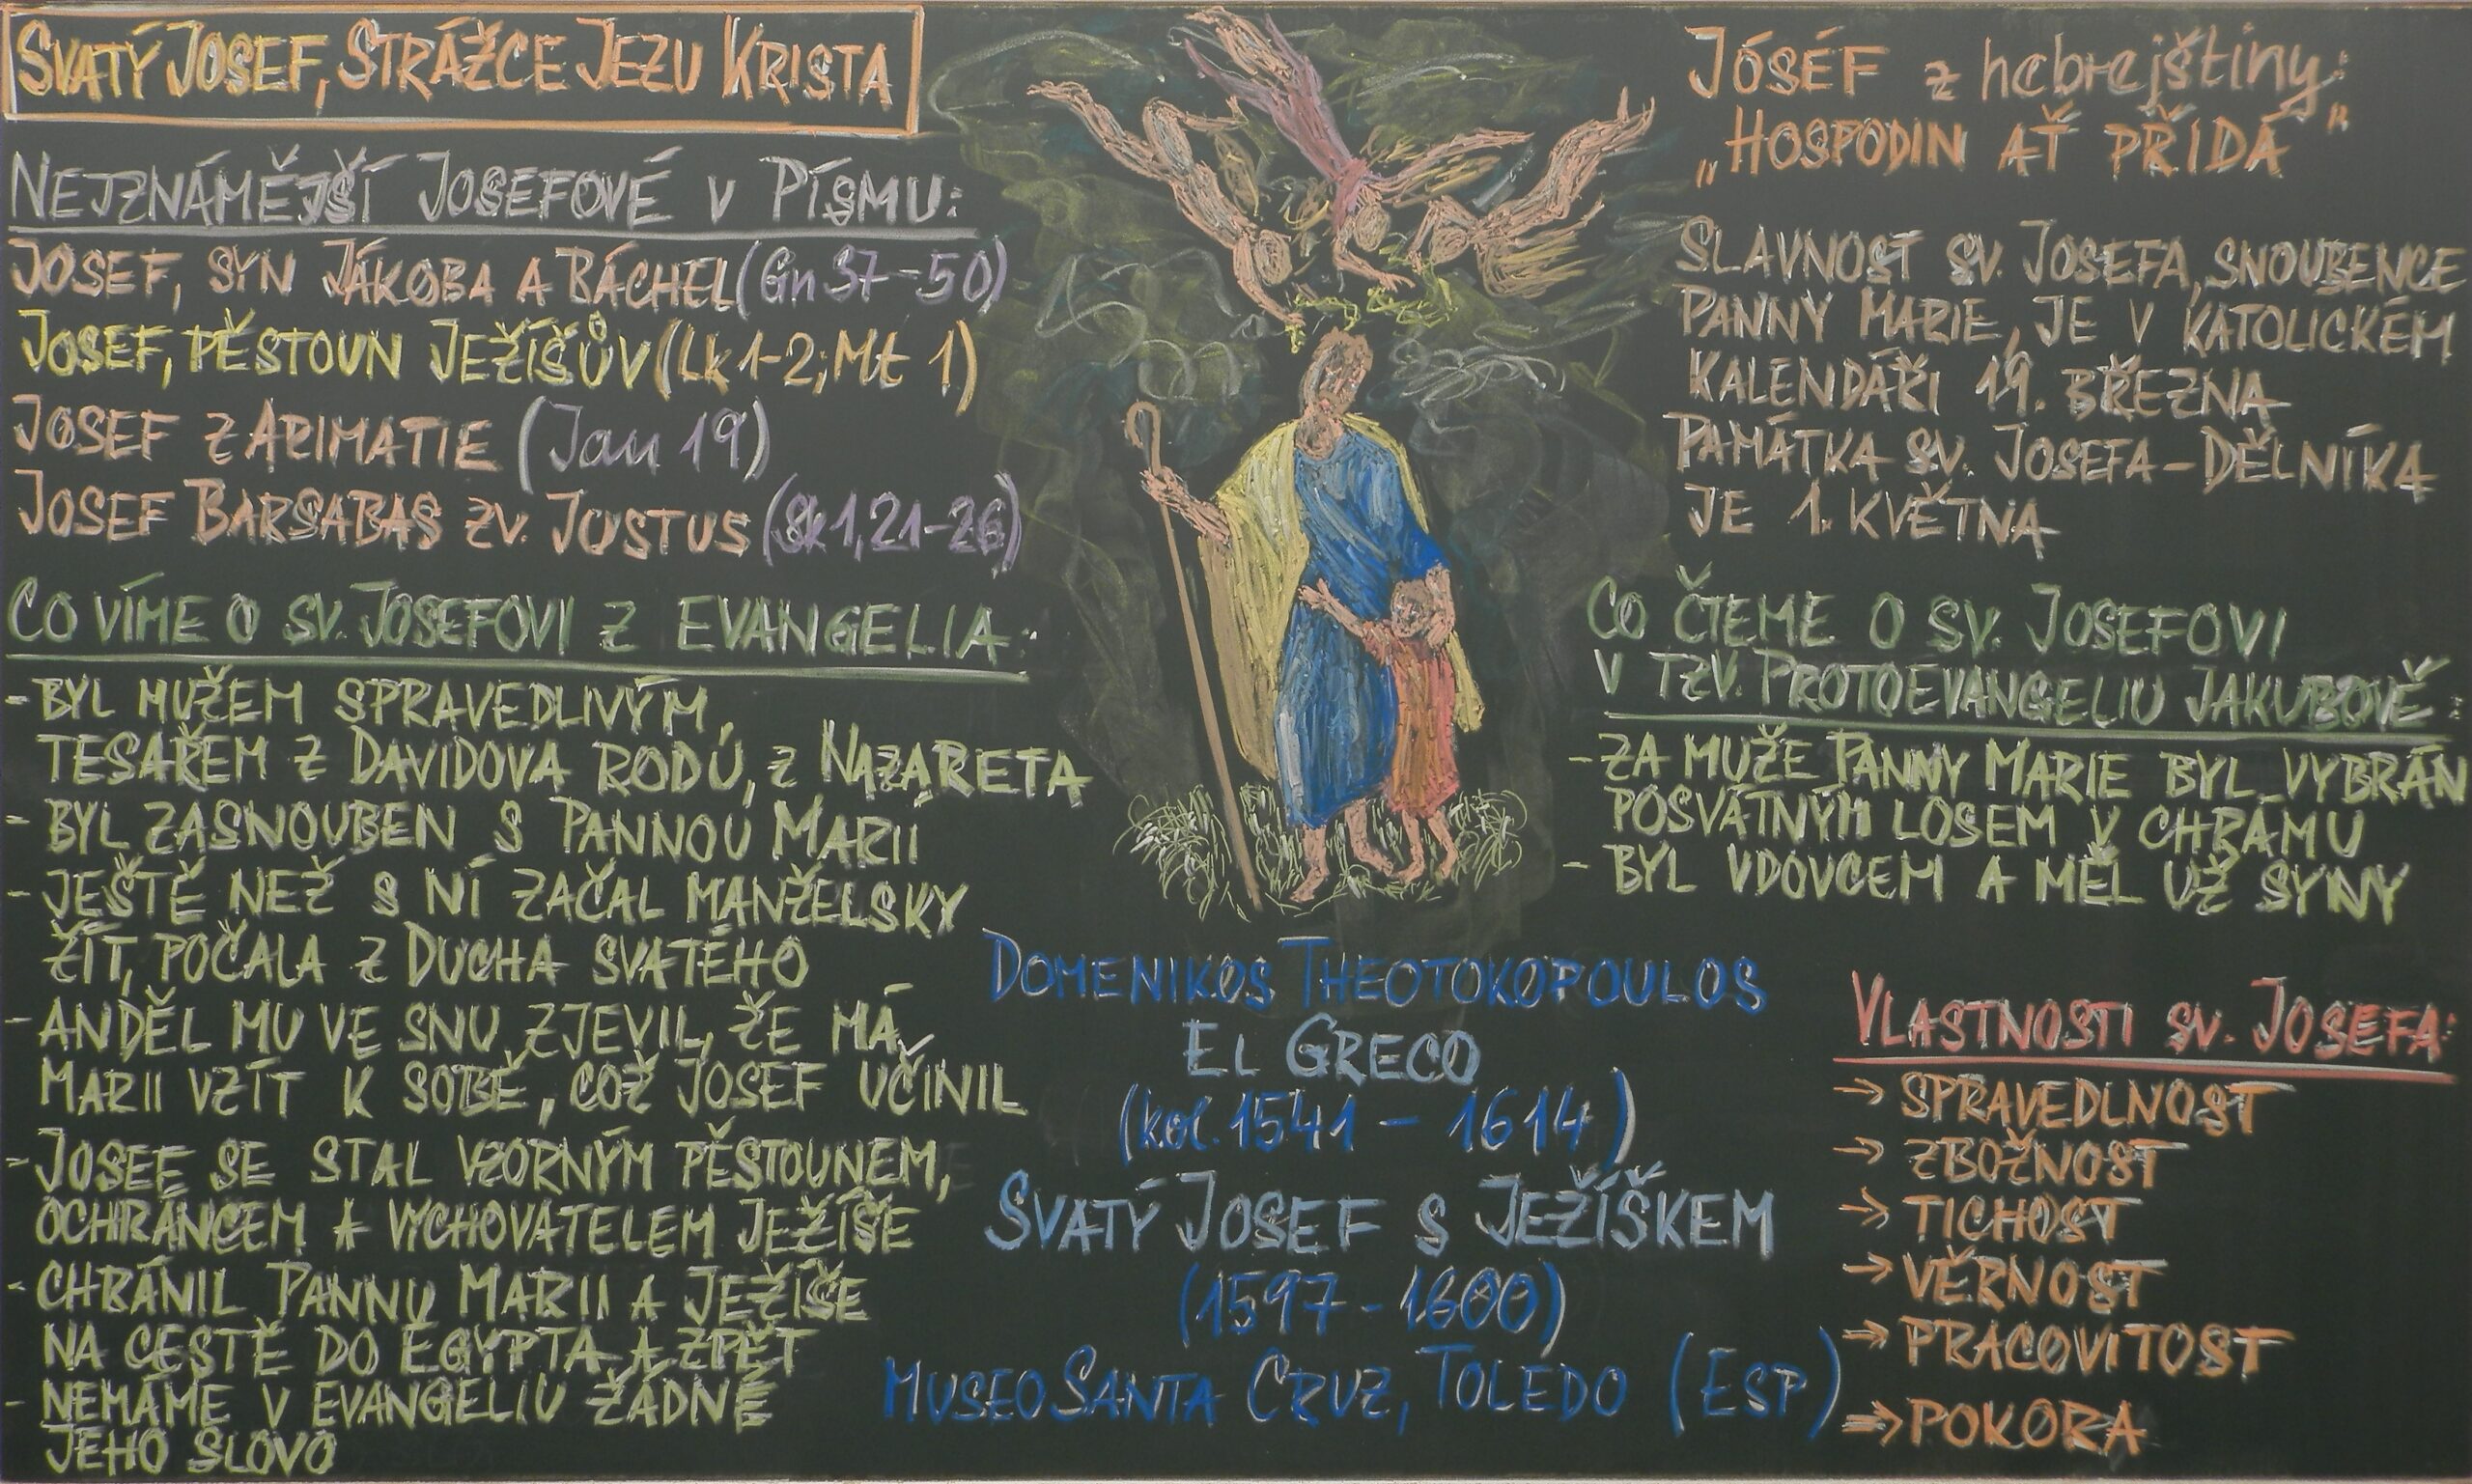 SVATÝ JOSEF, STRÁŽCE JEZU KRISTA
NEJZNÁMĚJŠÍ JOSEFOVÉ V PÍSMU:
JOSEF, SYN JÁKOBA A RÁCHEL (Gn 37-50)
JOSEF, PĚSTOUN JEŽÍŠŮV (Lk 1-2; Mt 1)
JOSEF Z ARIMATIE (Jan 19)
JOSEF BARSABAS ZV. JUSTUS (Sk 1,21-26)
CO VÍME O SV. JOSEFOVI Z EVANGELIA:
- BYL MUŽEM SPRAVEDLIVÝM,
TESAŘEM Z DAVIDOVA RODU, Z NAZARETA
- BYL ZASNOUBEN S PANNOU MARIÍ
- JEŠTĚ NEŽ S NÍ ZAČAL MANŽELSKY
ŽÍT, POČALA Z DUCHA SVATÉHO
- ANDĚL MU VE SNU ZJEVIL, ŽE MÁ
MARII VZÍT K SOBĚ, COŽ JOSEF UČINIL
- JOSEF SE STAL VZORNÝM PĚSTOUNEM,
OCHRÁNCEM A VYCHOVATELEM JEŽÍŠE
- CHRÁNIL PANNU MARII A JEŽÍŠE
NA CESTĚ DO EGYPTA A ZPĚT
- NEMÁME V EVANGELIU ŽÁDNÉ
JEHO SLOVO
DOMENIKOS THEOTOKOPOULOS
EL GRECO
(kol. 1541 - 1614)
SVATÝ JOSEF S JEŽÍŠKEM
(1597 - 1600)
MUSEO SANTA CRUZ, TOLEDO (ESP)
JÓSÉF z hebrejštiny:
„HOSPODIN AŤ PŘIDÁ"
SLAVNOST SV. JOSEFA, SNOUBENCE
PANNY MARIE, JE V KATOLICKÉM
KALENDÁŘI 19. BŘEZNA
PAMÁTKA SV. JOSEFA-DĚLNÍKA
JE 1. KVĚTNA
CO ČTEME O SV. JOSEFOVI
V TZV. PROTOEVANGELIU JAKUBOVĚ:
- ZA MUŽE PANNY MARIE BYL VYBRÁN
POSVÁTNÝM LOSEM V CHRÁMU
- BYL VDOVCEM A MĚL UŽ SYNY
VLASTNOSTI SV. JOSEFA:
→ SPRAVEDLNOST
→ ZBOŽNOST
→ TICHOST
→ VĚRNOST
→ PRACOVITOST
⇒ POKORA